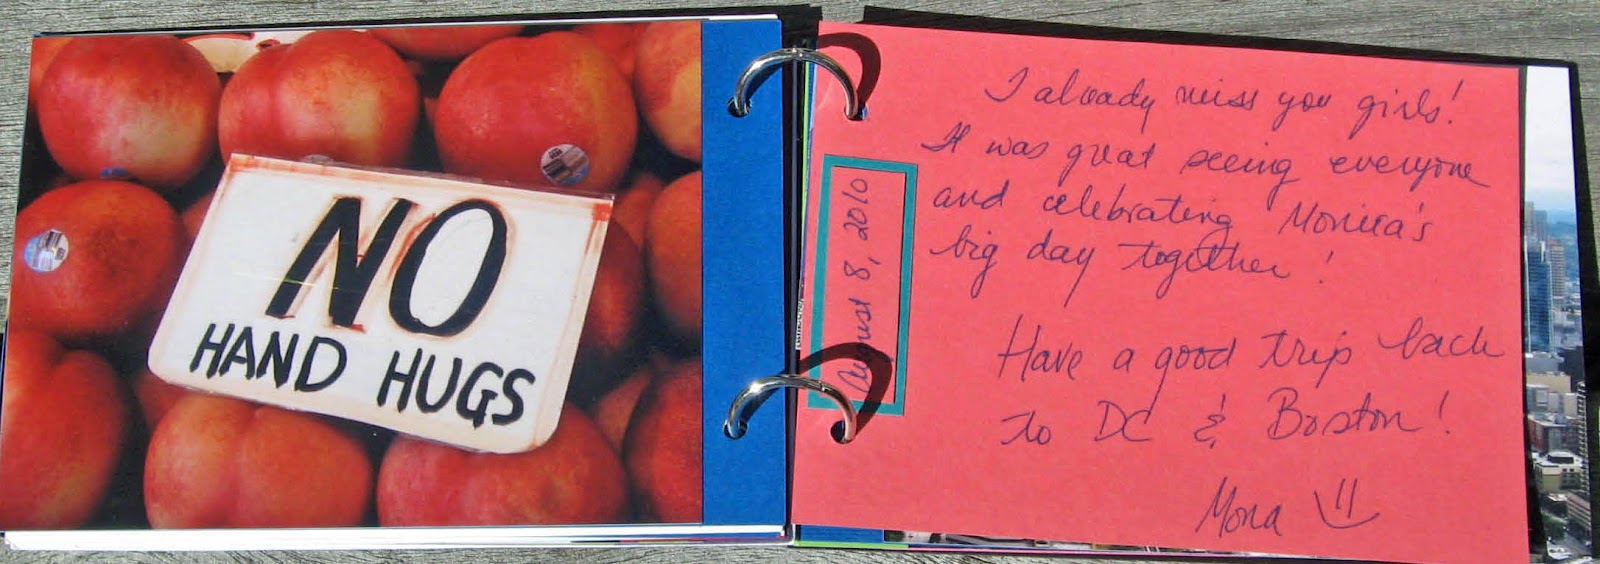 NO
HAND HUGS
August 8, 2010
I already miss you girls!
It was great seeing everyone
and celebrating Monica's
big day together!
Have a good trip back
to DC & Boston!
Mona